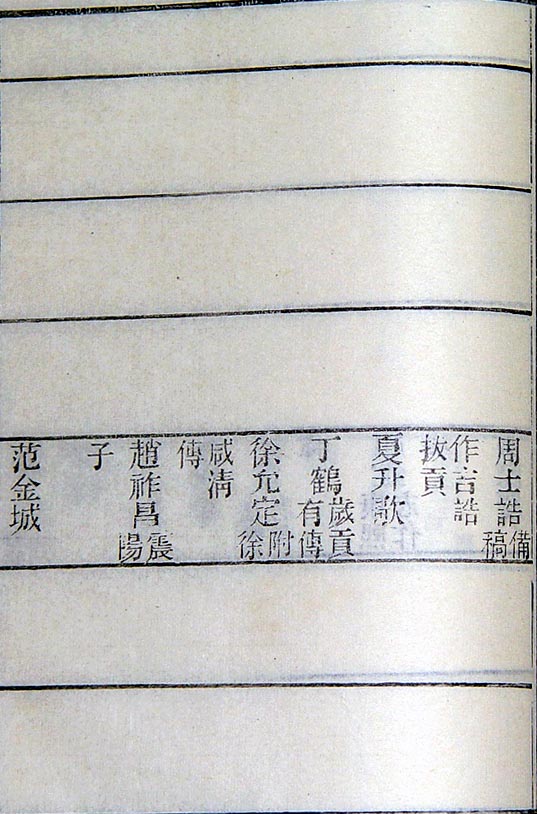 周士誥備稿
作吉誥
拔貢
夏升歌
丁鶴歲貢有傳
徐允定附徐
咸清
傳
趙祚昌震陽
子
范金城